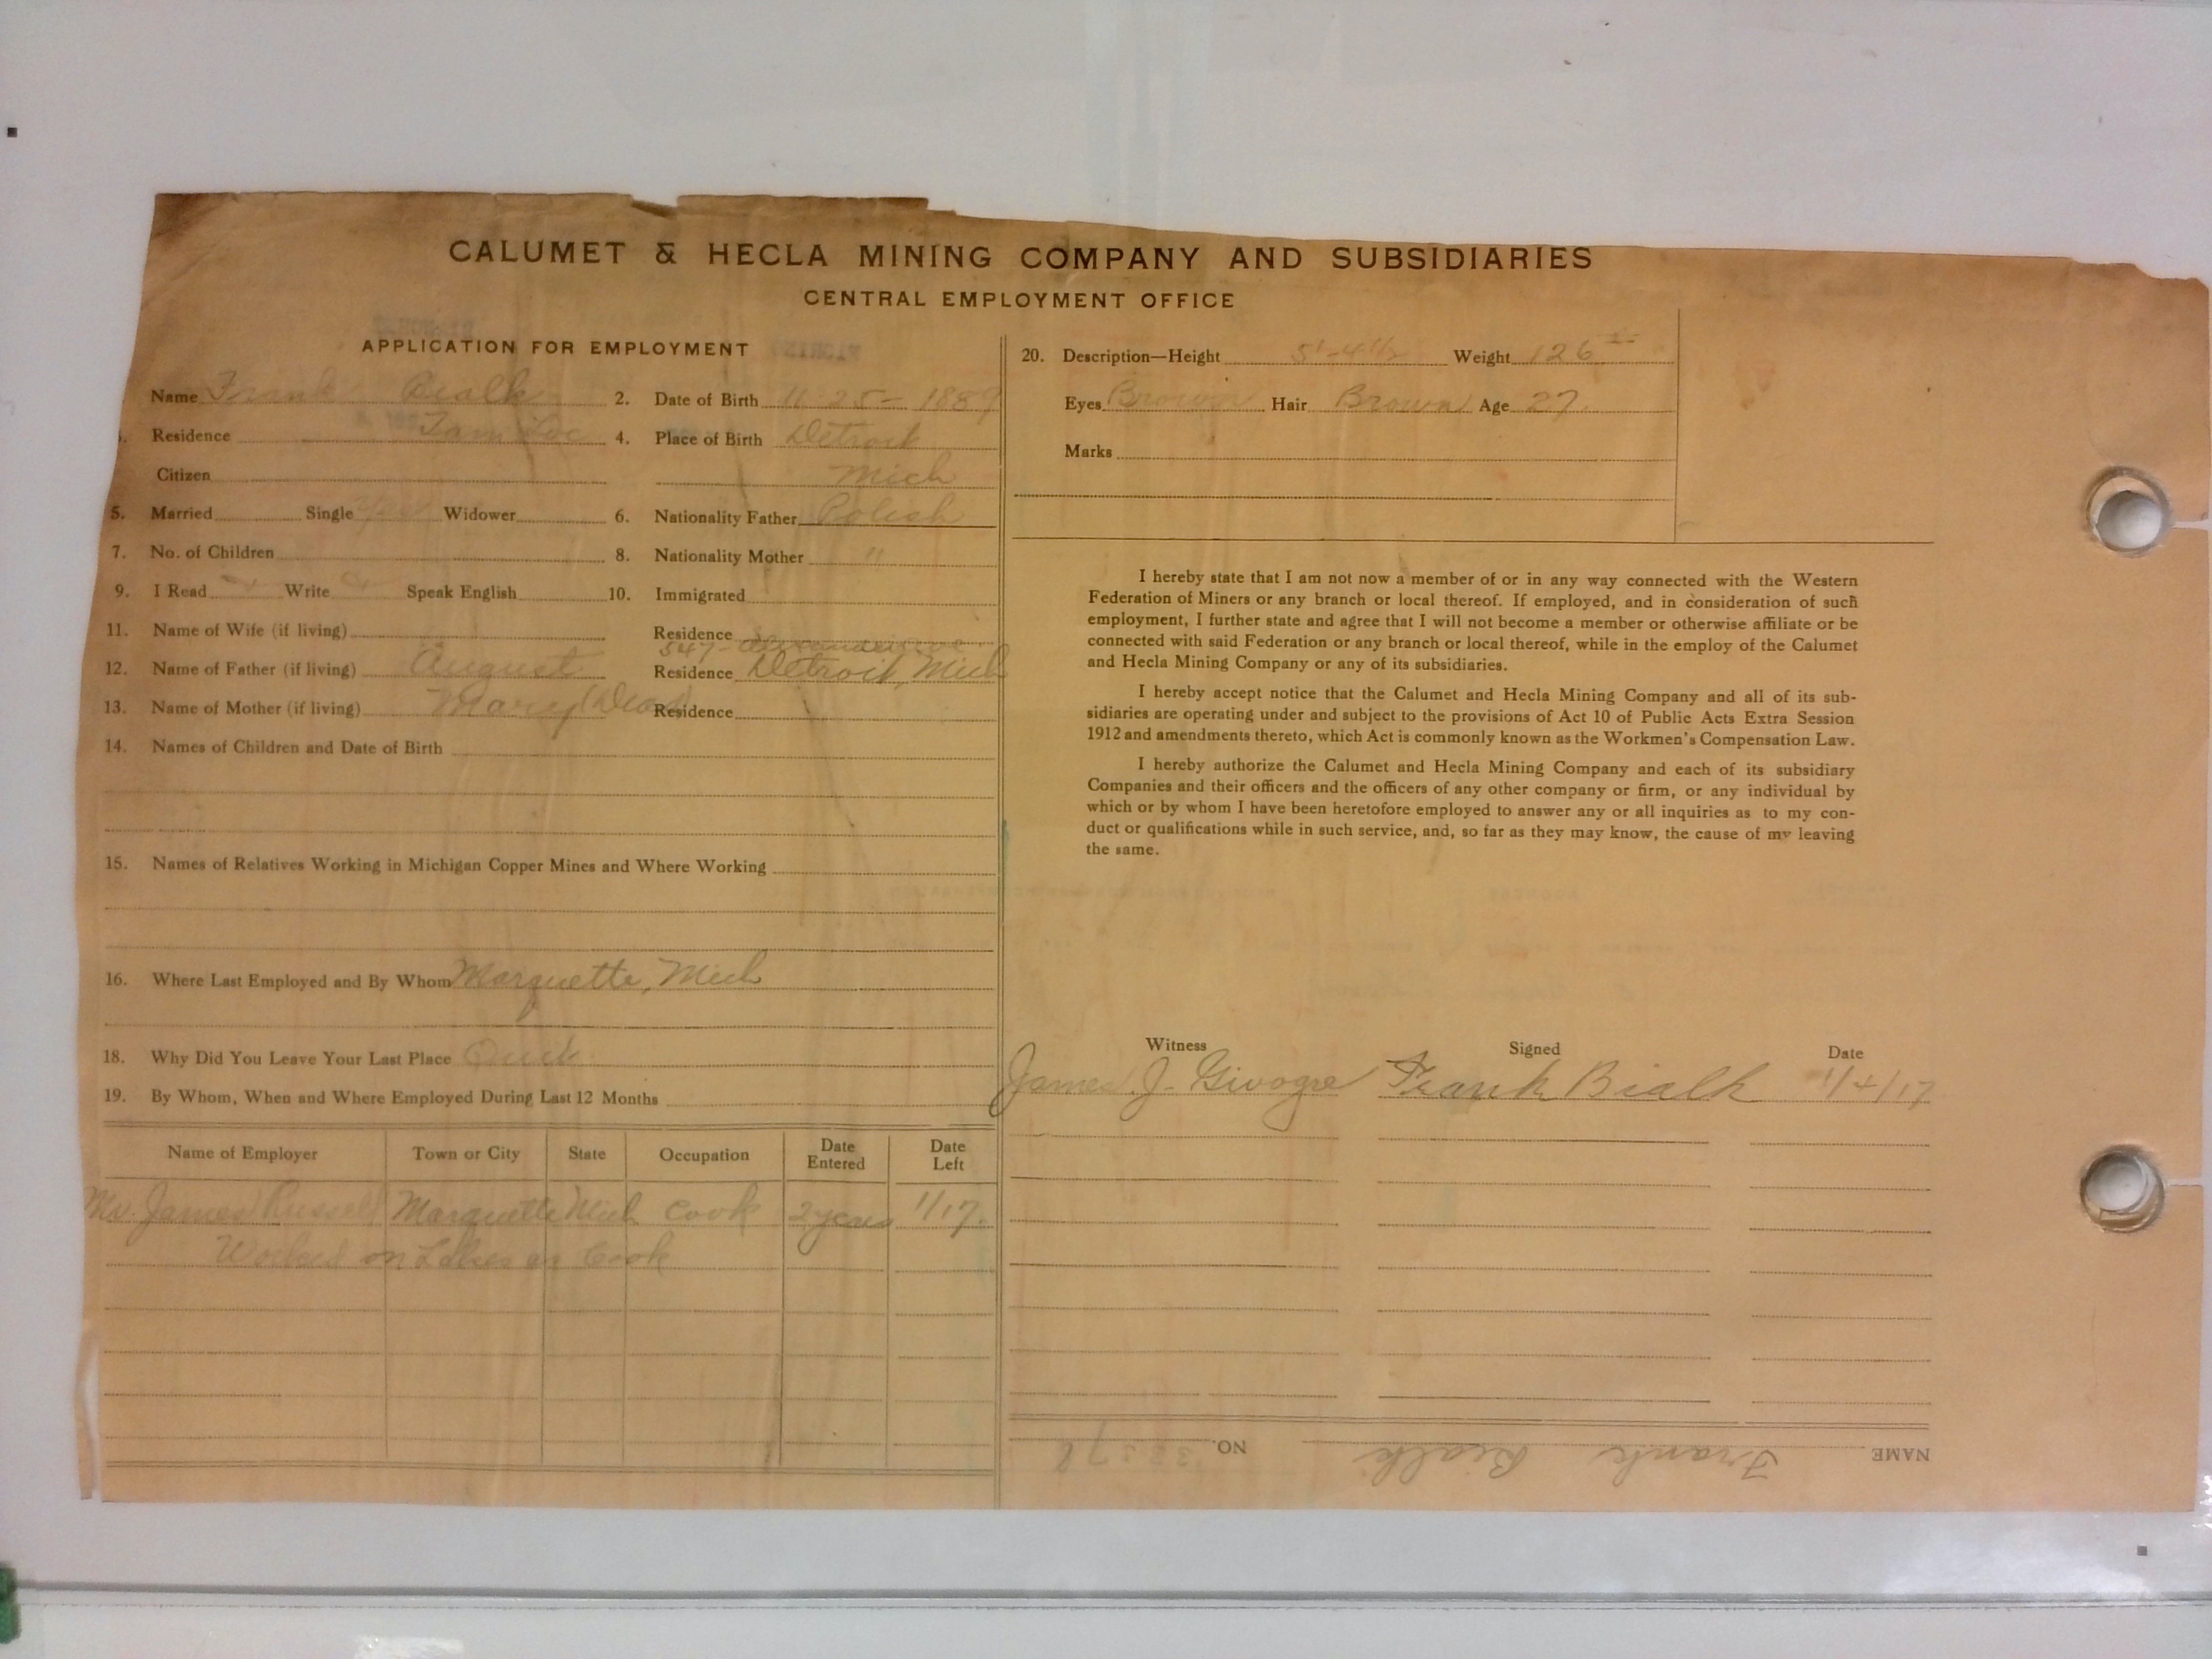 CALUMET & HECLA MINING COMPANY AND SUBSIDIARIES
CENTRAL EMPLOYMENT OFFICE
APPLICATION FOR EMPLOYMENT
Name Frank Bialk 2. Date of Birth 11-25-1889
Residence 4. Place of Birth Detroit
Citizen Mich
5. Married Single Yes Widower 6. Nationality Father Polish
7. No. of Children 8. Nationality Mother "
9. I Read Write Speak English 10. Immigrated
11. Name of Wife (if living) Residence
547-
12. Name of Father (if living) August Residence Detroit, Mich
13. Name of Mother (if living) Mary (Dead) Residence
14. Names of Children and Date of Birth
15. Names of Relatives Working in Michigan Copper Mines and Where Working
16. Where Last Employed and By Whom Marquette, Mich
18. Why Did You Leave Your Last Place
19. By Whom, When and Where Employed During Last 12 Months
Name of Employer Town or City State Occupation Date Entered Date Left
Mr. James Russell Marquette Mich Cook 2 years 1/17.
Worked on Lakes as Cook
20. Description—Height 5'-4 1/2 Weight 126
Eyes Brown Hair Brown Age 27.
Marks
I hereby state that I am not now a member of or in any way connected with the Western
Federation of Miners or any branch or local thereof. If employed, and in consideration of such
employment, I further state and agree that I will not become a member or otherwise affiliate or be
connected with said Federation or any branch or local thereof, while in the employ of the Calumet
and Hecla Mining Company or any of its subsidiaries.
I hereby accept notice that the Calumet and Hecla Mining Company and all of its sub-
sidiaries are operating under and subject to the provisions of Act 10 of Public Acts Extra Session
1912 and amendments thereto, which Act is commonly known as the Workmen's Compensation Law.
I hereby authorize the Calumet and Hecla Mining Company and each of its subsidiary
Companies and their officers and the officers of any other company or firm, or any individual by
which or by whom I have been heretofore employed to answer any or all inquiries as to my con-
duct or qualifications while in such service, and, so far as they may know, the cause of my leaving
the same.
Witness Signed Date
James J. Givogre Frank Bialk 1/4/17
NAME Frank Bialk NO.